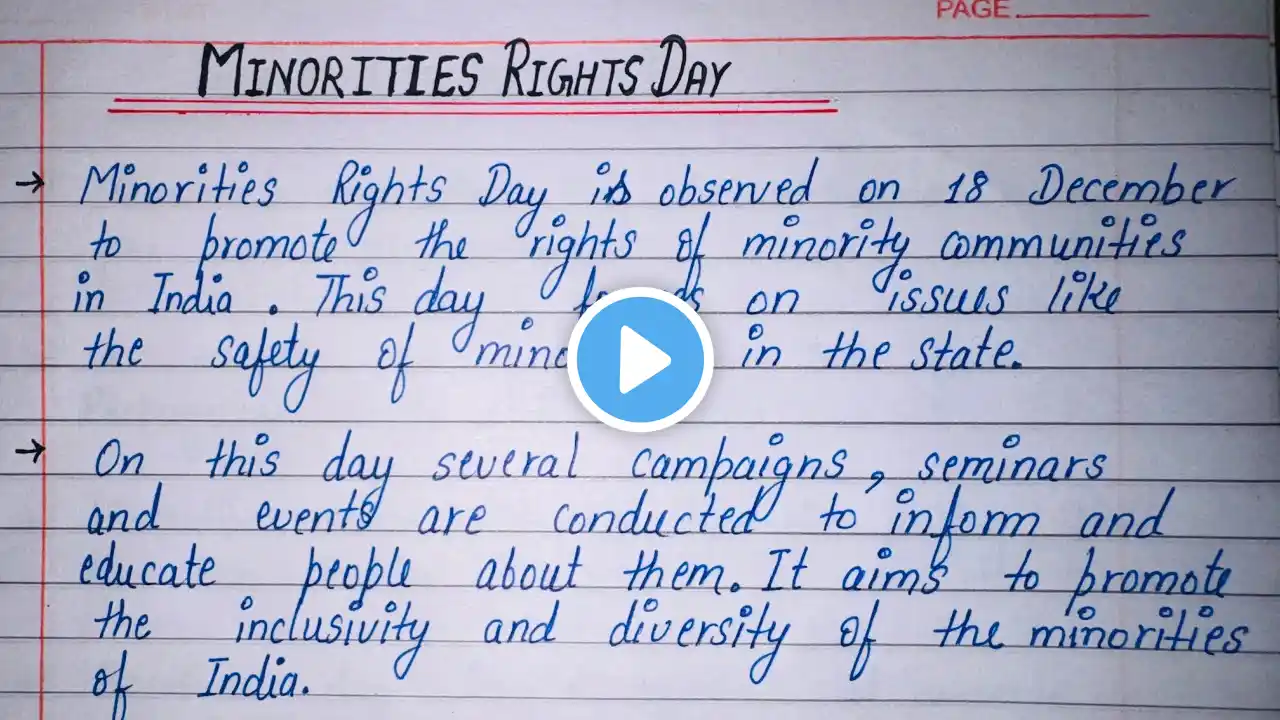 PAGE
MINORITIES RIGHTS DAY
→ Minorities Rights Day is observed on 18 December
to promote the rights of minority communities
in India. This day on issues like
the safety of in the state.
→ On this day several campaigns, seminars
and events are conducted to inform and
educate people about them. It aims to promote
the inclusivity and diversity of the minorities
of India.